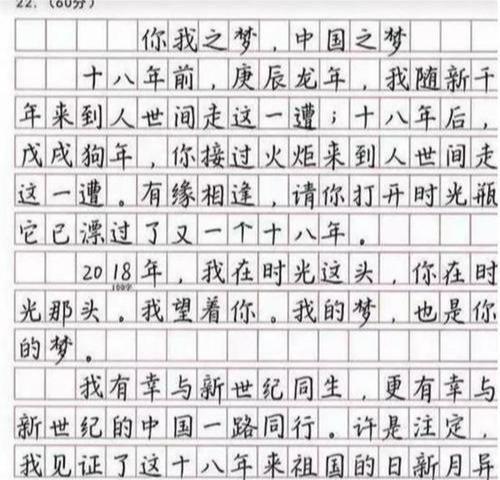 22.（60分）
你我之梦，中国之梦
十八年前，庚辰龙年，我随新千
年来到人世间走这一遭；十八年后，
戊戌狗年，你接过火炬来到人世间走
这一遭。有缘相逢，请你打开时光瓶
它已漂过了又一个十八年。
2018年，我在时光这头，你在时
100字
光那头。我望着你。我的梦，也是你
的梦。
我有幸与新世纪同生，更有幸与
新世纪的中国一路同行。许是注定，
我见证了这十八年来祖国的日新月异